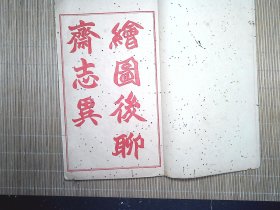 繪圖後聊
齋志異